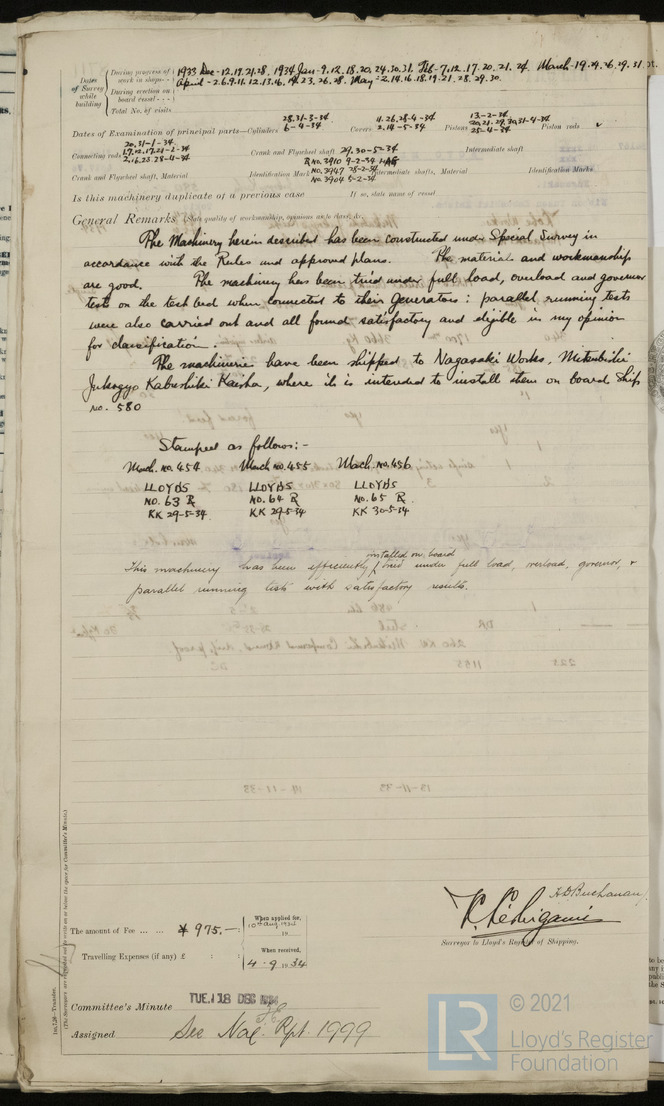 Dates of Survey while building
During progress of work in shops - - 1933 Dec - 12.19.21.28. 1934 Jan - 9.12.18.20.24.30.31. Feb - 7.12.17.20.21.24. March - 19.24.26.29.31
April - 2.6.9.11.12.13.16.19.23.26.28. May - 2.14.16.18.19.21.28.29.30.
During erection on board vessel - - -
Total No. of visits
Dates of Examination of principal parts—Cylinders 28.31-3-34 6-4-34 Covers 11.26.28-4-34 2.14-5-34 Pistons 13-2-34 25-4-34 Piston rods
Connecting rods 20.31-1-34 Crank and Flywheel shaft 29.30-5-34 Intermediate shaft
Crank and Flywheel shaft, Material Identification Mark R No. 3910 9-2-34 No. 3947 28-2-34 No. 3904 5-2-34 Intermediate shafts, Material Identification Marks
Is this machinery duplicate of a previous case If so, state name of vessel
General Remarks (State quality of workmanship, opinions as to class, &c.
The Machinery herein described has been constructed under Special Survey in
accordance with the Rules and approved plans. The materials and workmanship
are good. The machinery has been tried under full load, overload and governor
tests on the test bed when connected to their generators : parallel running tests
were also carried out and all found satisfactory and eligible in my opinion
for classification.
The machinerie have been shipped to Nagasaki Works, Mitsubishi
Jukogyo Kabushiki Kaisha, where it is intended to install them on board Ship
no. 580
Stamped as follows:-
Mach. no. 454 Mach no. 455 Mach. no. 456
LLOYDS LLOYDS LLOYDS
NO. 63 R NO. 64 R NO. 65 R
KK 29-5-34 KK 29-5-34 KK 30-5-34
installed on board
This machinery has been efficiently & tried under full load, overload, governor, &
parallel running tests with satisfactory results.
H D Buchanan
Surveyor to Lloyd's Register of Shipping.
The amount of Fee ... ... ¥ 975.— : When applied for, 10th Aug. 1934
Travelling Expenses (if any) £ : : When received, 4.9.1934
Committee's Minute TUE. 18 DEC 1934
Assigned See Nag. Rpt. 1999
Im.7,28.—Transfer.
(The Surveyors are requested not to write on or below the space for Committee's Minute.)
© 2021
LR Lloyd's Register
Foundation